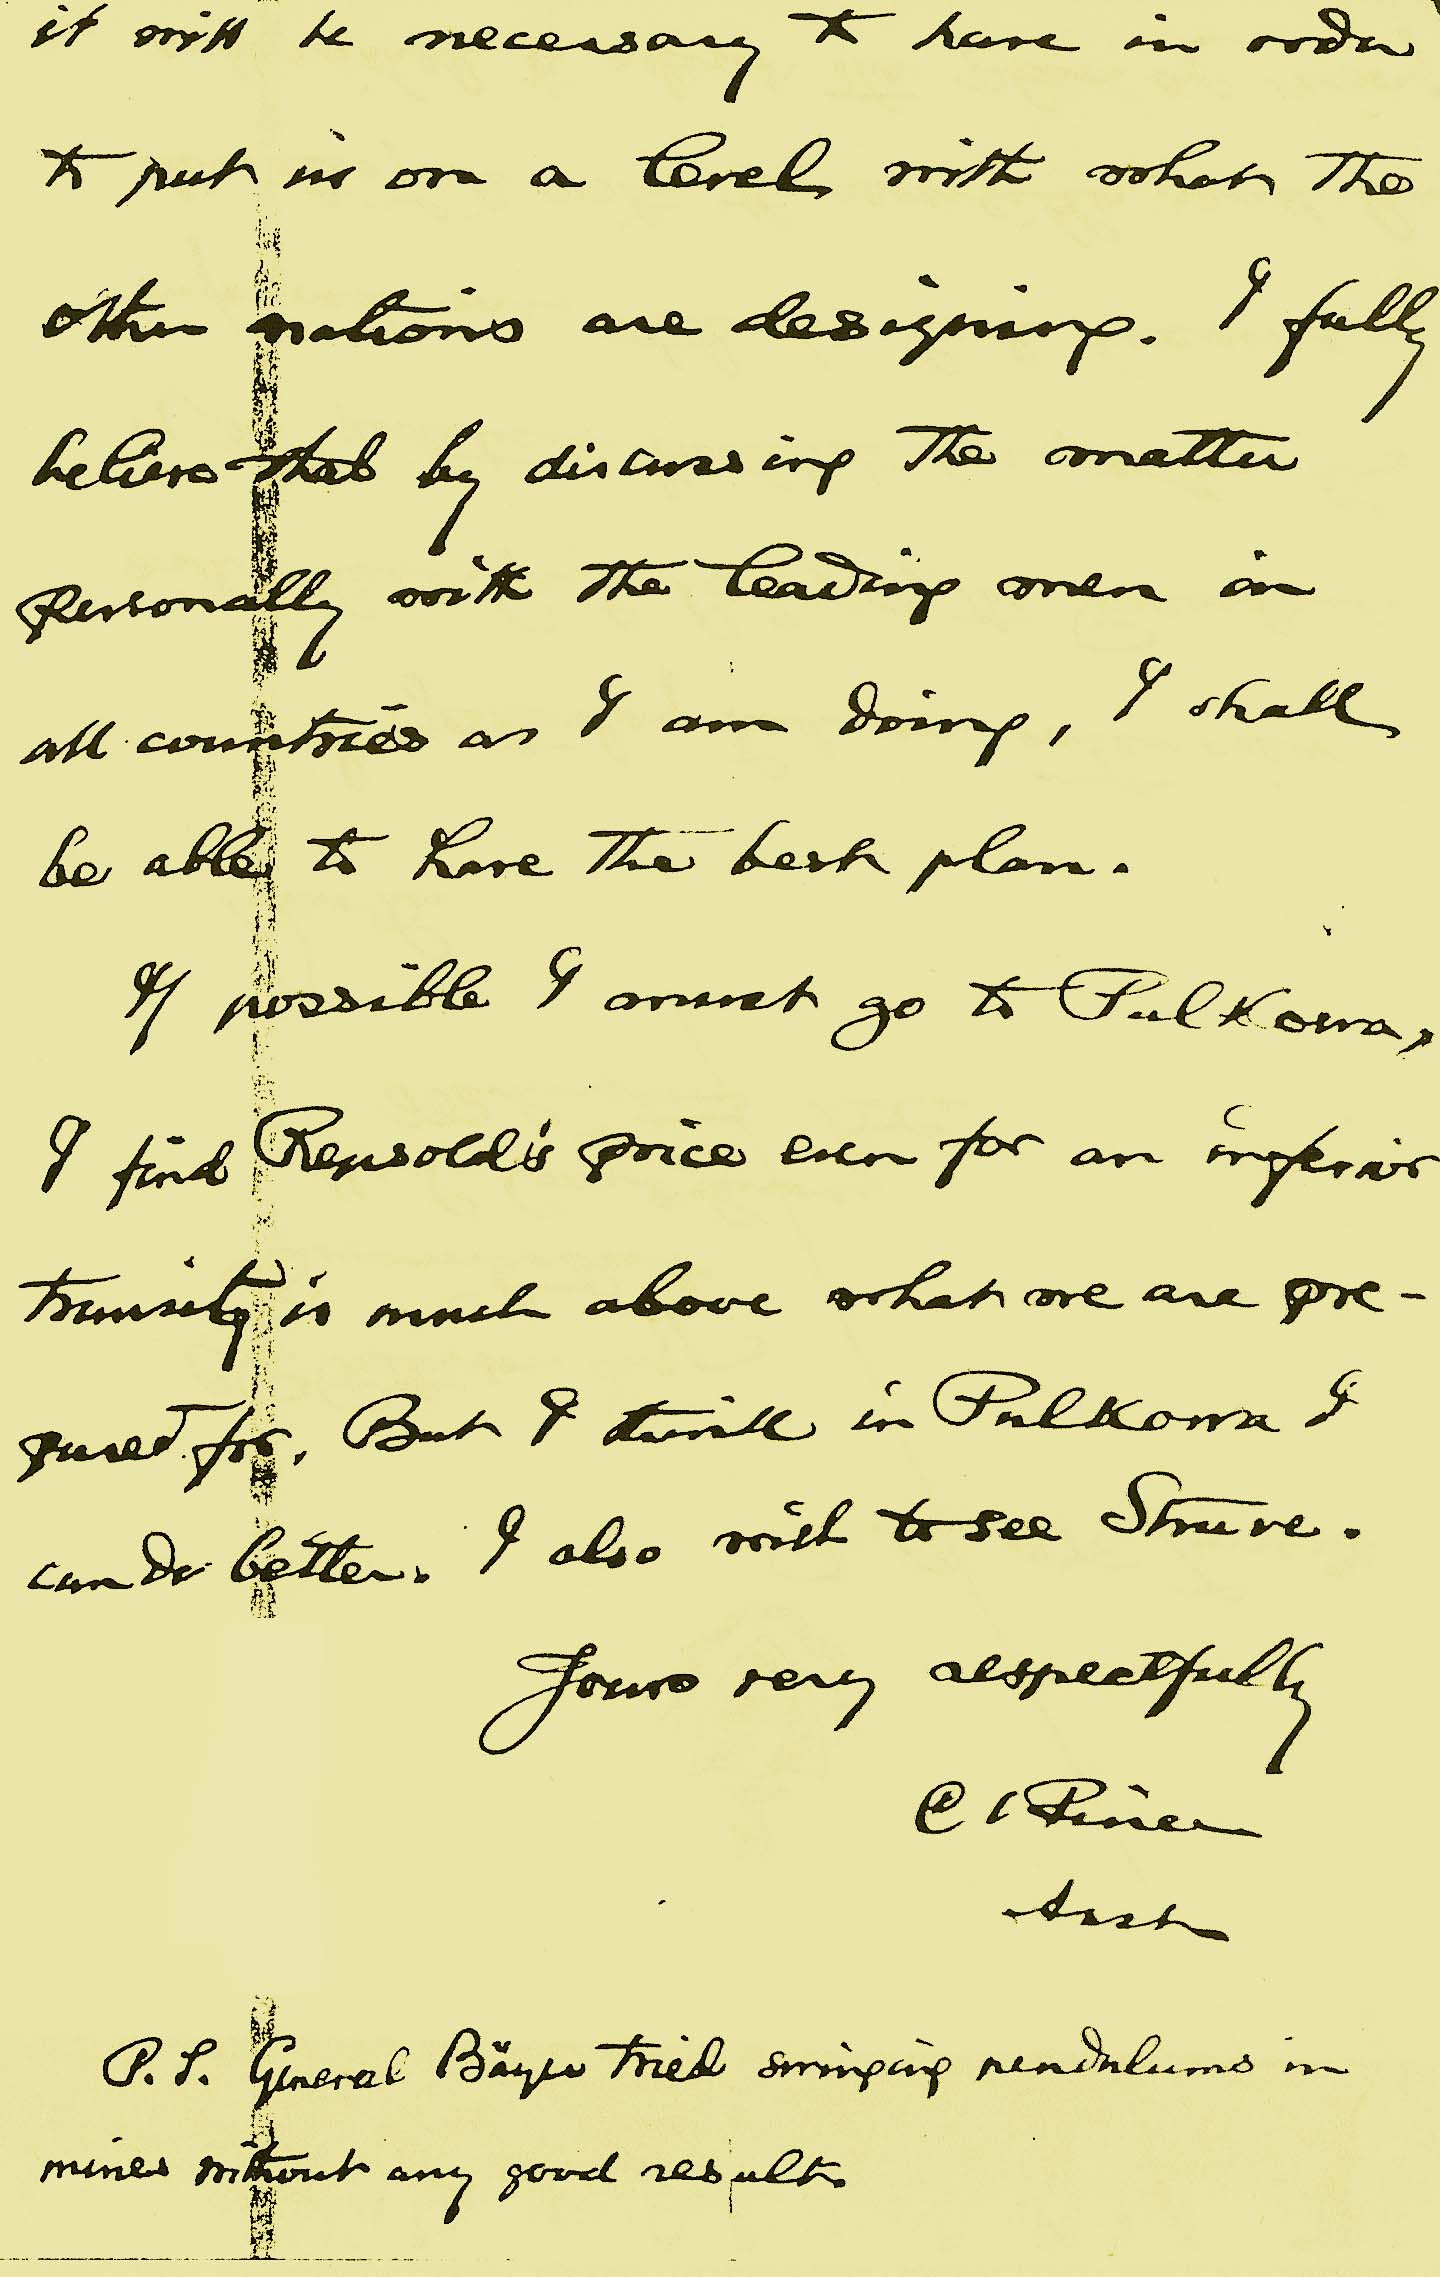 it will be necessary to have in order
to put us on a level with what the
other nations are designing. I fully
believe that by discussing the matter
personally with the leading men in
all countries as I am doing, I shall
be able to have the best plan.
If possible I must go to Pulkowa,
I find Repsold's price even for an inferior
transit is much above what we are pre-
pared for. But I think in Pulkowa I
can do better. I also wish to see Struve.
Yours very respectfully
C S Peirce
Asst
P.S. General Bäyer tried swinging pendulums in
mines without any good result.